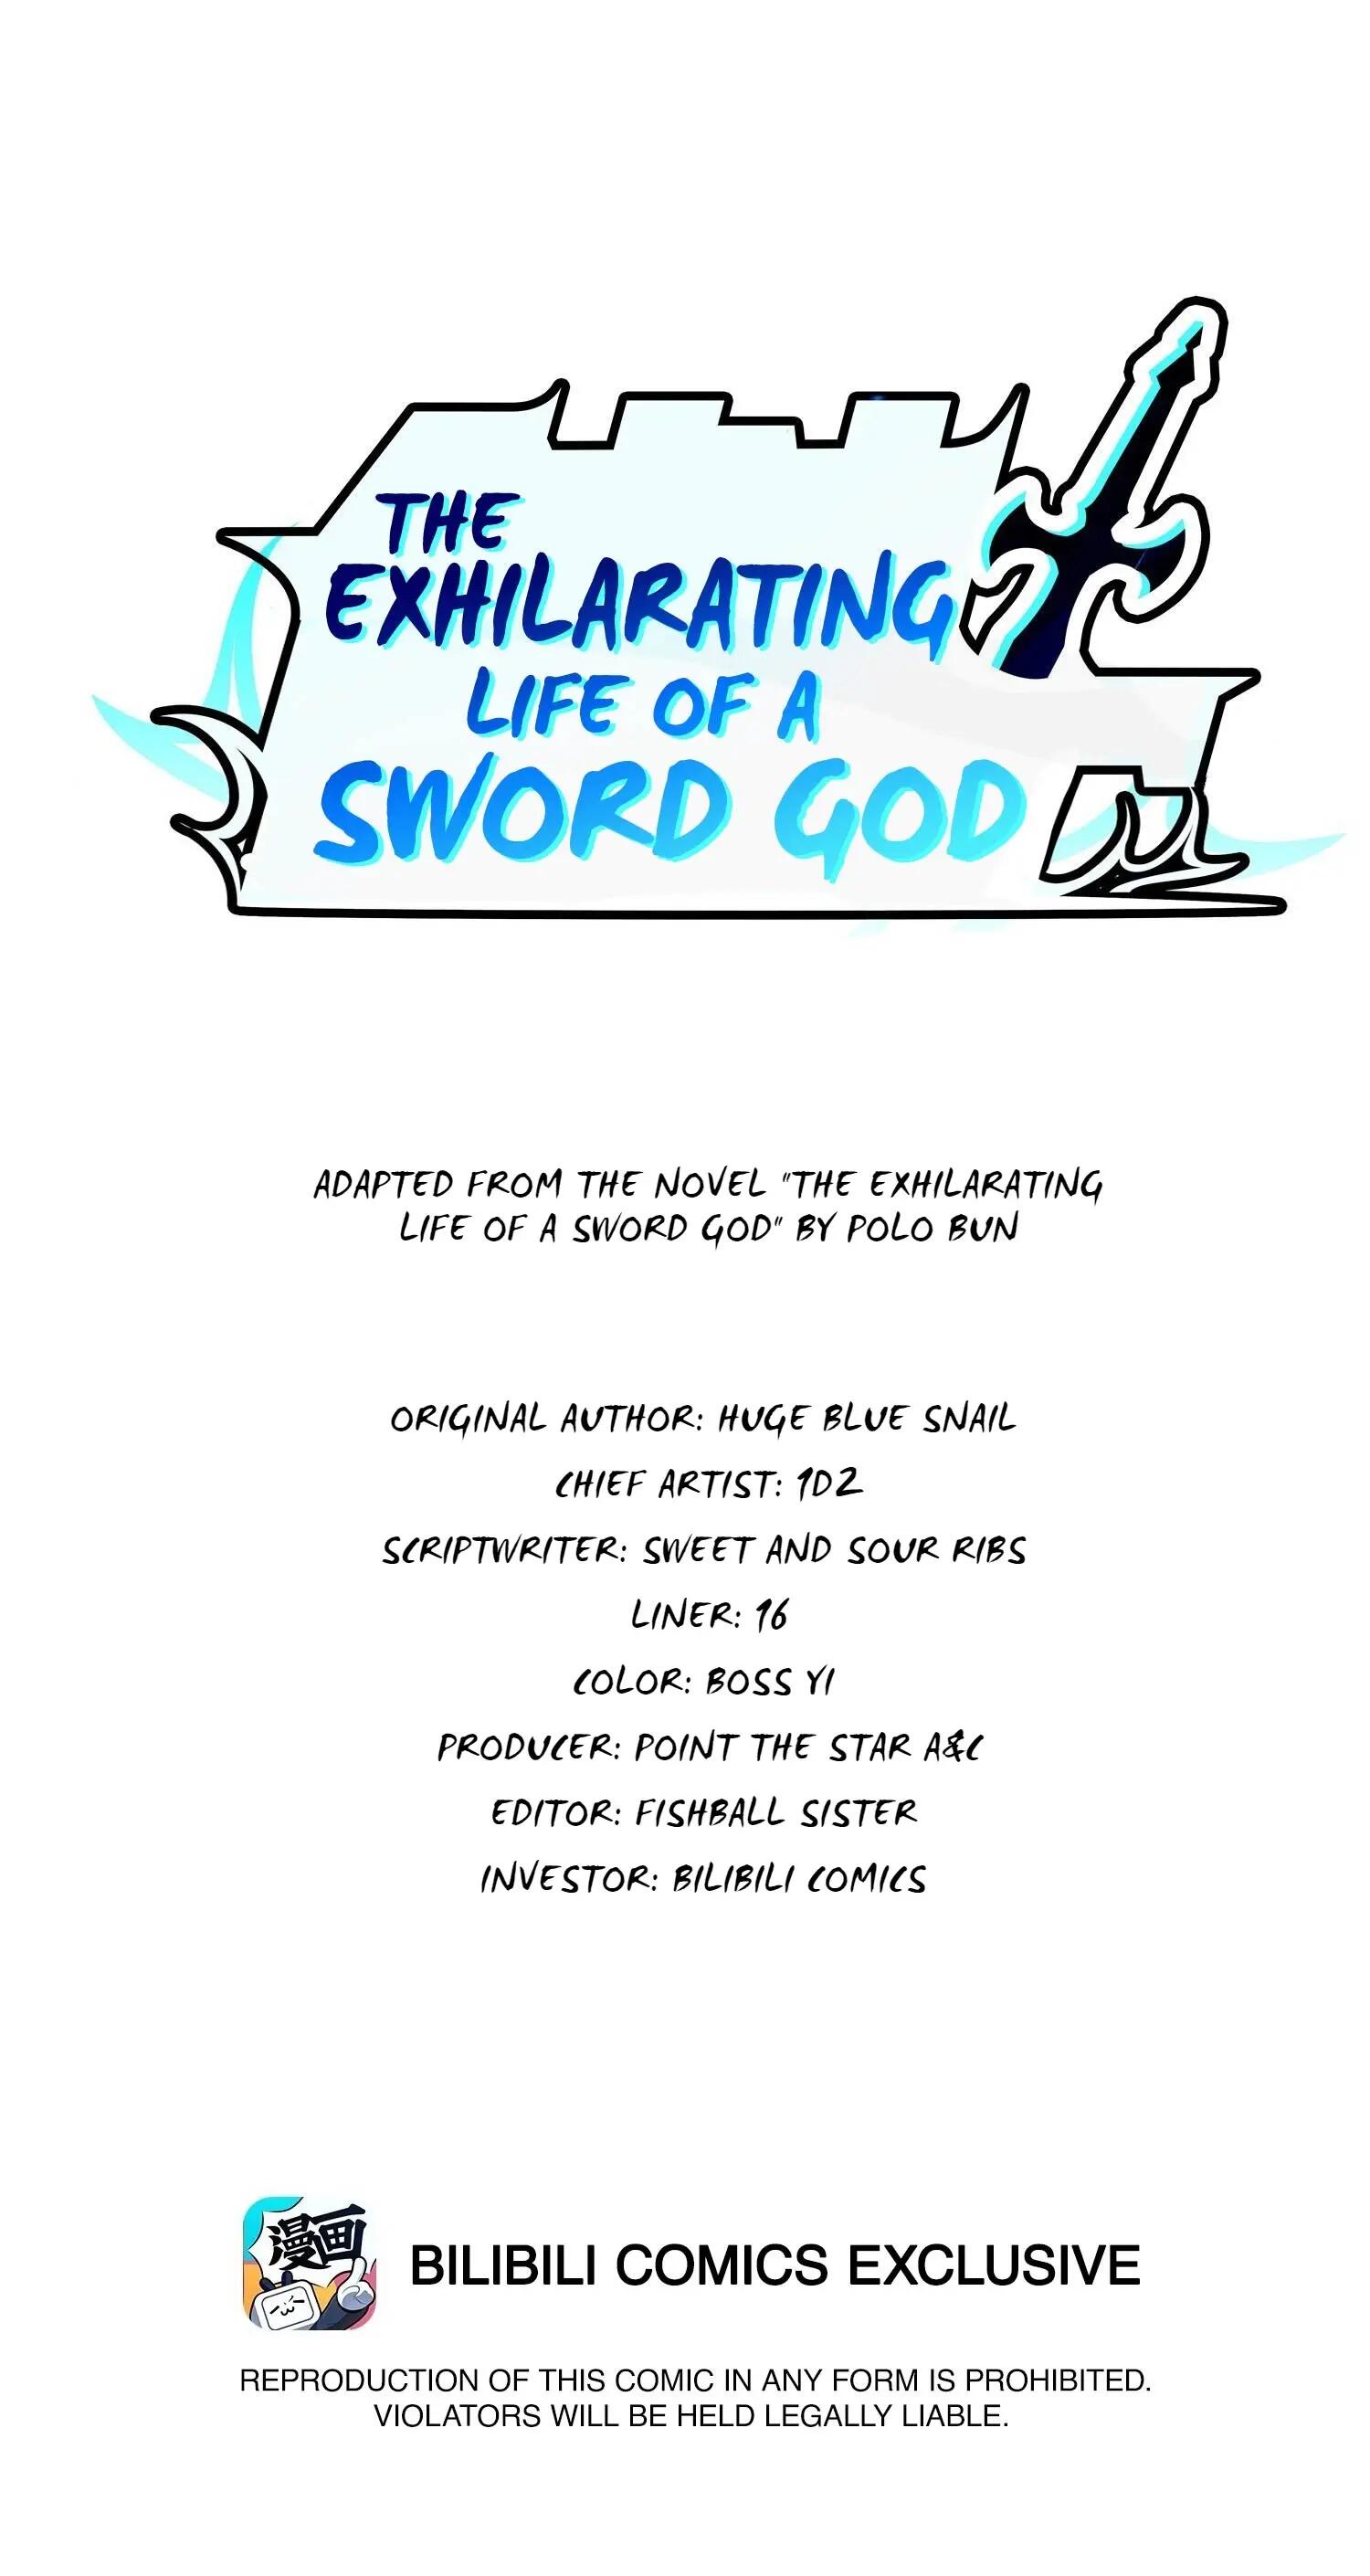 THE
EXHILARATING
LIFE OF A
SWORD GOD
ADAPTED FROM THE NOVEL "THE EXHILARATING
LIFE OF A SWORD GOD" BY POLO BUN
ORIGINAL AUTHOR: HUGE BLUE SNAIL
CHIEF ARTIST: 1D2
SCRIPTWRITER: SWEET AND SOUR RIBS
LINER: 16
COLOR: BOSS YI
PRODUCER: POINT THE STAR A&C
EDITOR: FISHBALL SISTER
INVESTOR: BILIBILI COMICS
漫画
BILIBILI COMICS EXCLUSIVE
REPRODUCTION OF THIS COMIC IN ANY FORM IS PROHIBITED.
VIOLATORS WILL BE HELD LEGALLY LIABLE.